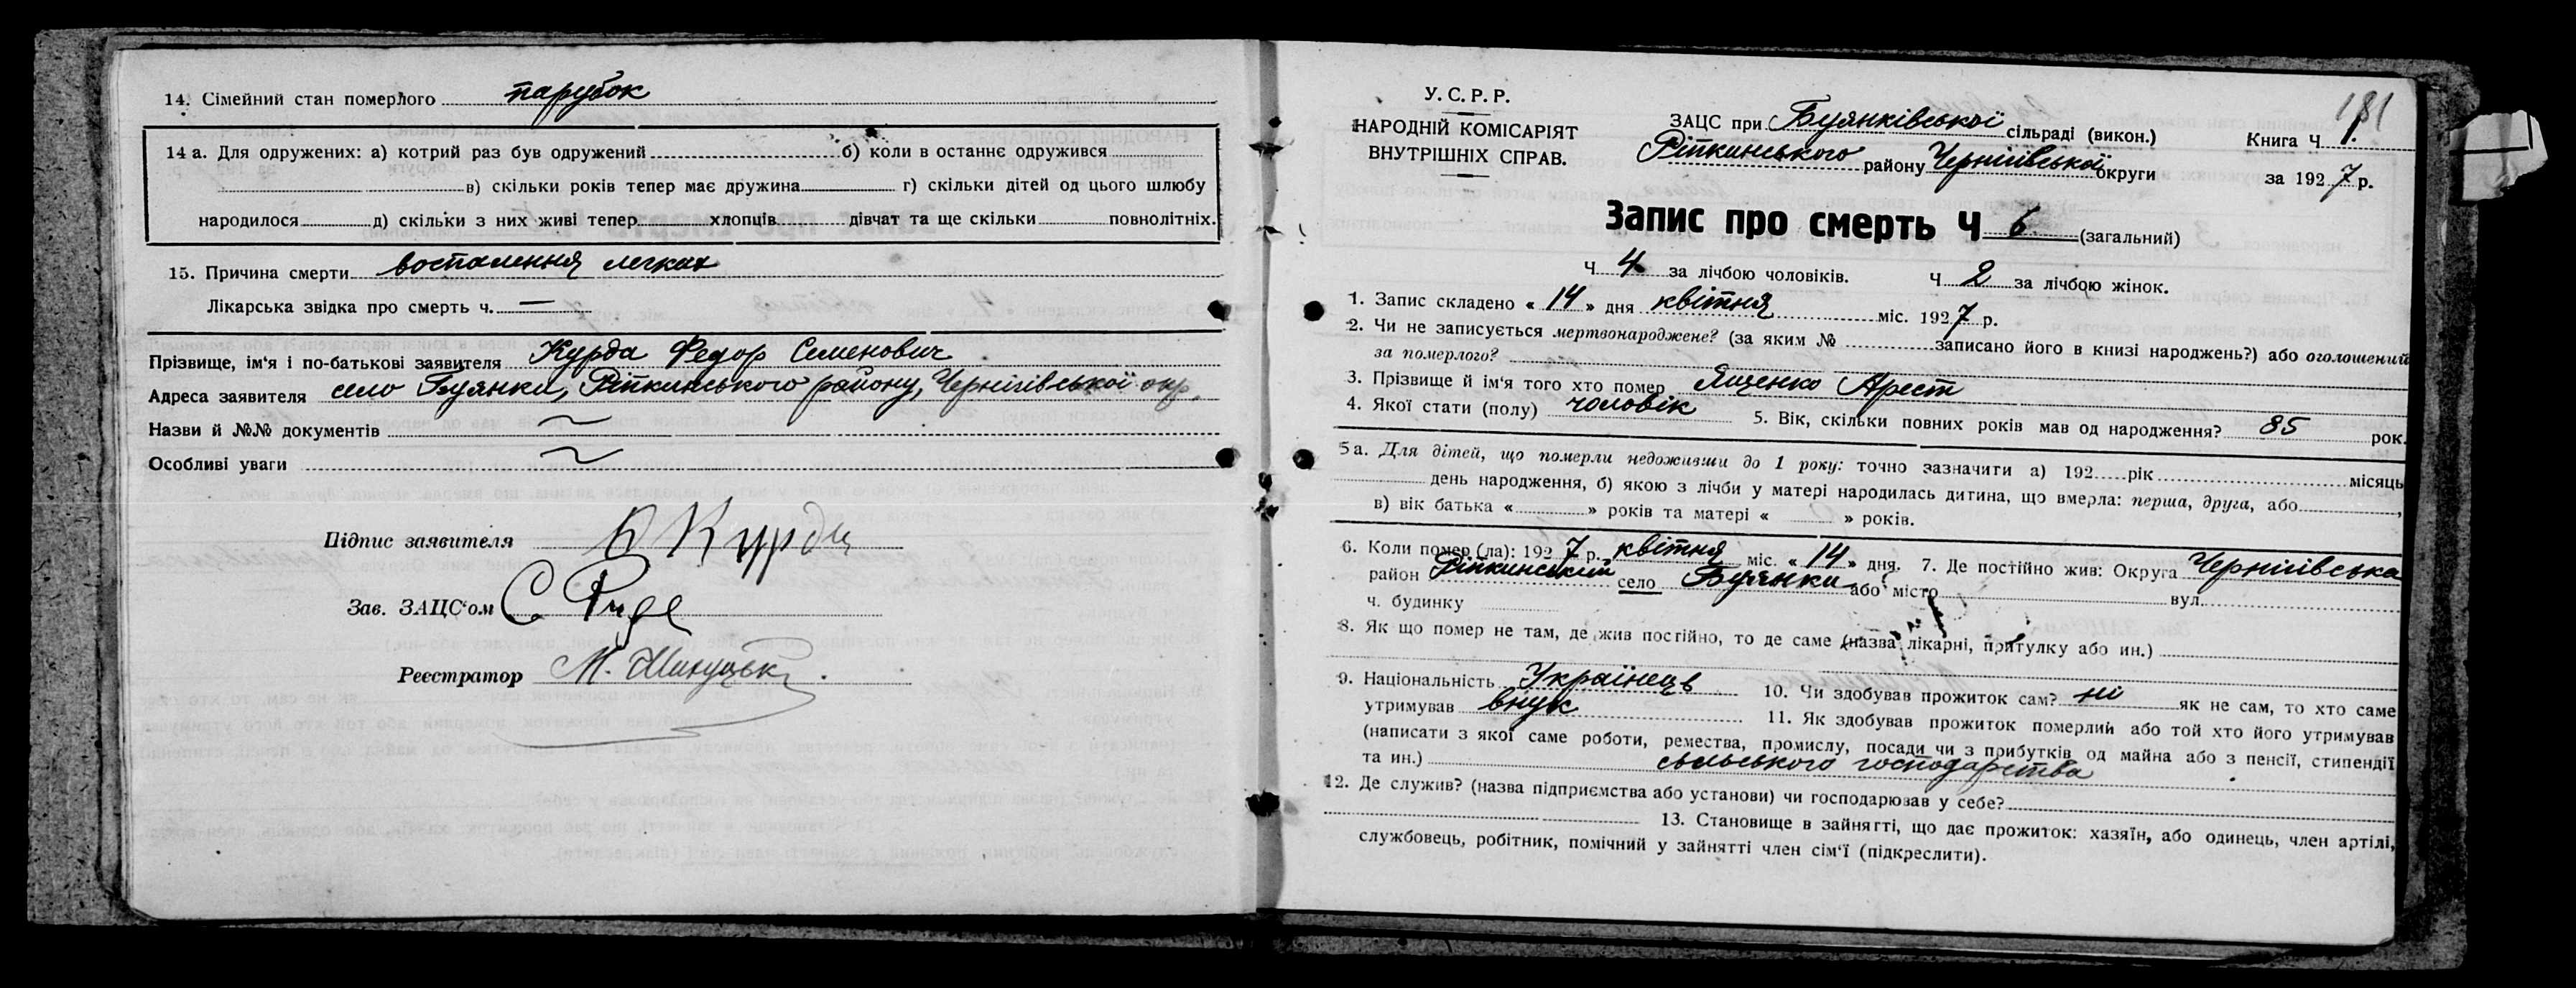 14. Сімейний стан померлого парубок
14 а. Для одружених: а) котрий раз був одружений б) коли в останнє одружився
в) скільки років тепер має дружина г) скільки дітей од цього шлюбу
народилося д) скільки з них живі тепер хлопців дівчат та ще скільки повнолітніх.
15. Причина смерти воспалення легках
Лікарська звідка про смерть ч. —
Прізвище, ім'я і по-батькові заявителя Курда Федор Семенович
Адреса заявителя село Буянки, Ріпкинського району, Чернігівської окр.
Назви й №№ документів ~
Особливі уваги ~
Підпис заявителя Курда
Зав. ЗАЦС'ом С.
Реєстратор М.
181
У. С. Р. Р.
НАРОДНІЙ КОМІСАРІЯТ
ВНУТРІШНІХ СПРАВ.
ЗАЦС при Буянківської сільраді (викон.)
Ріпкинського району Чернігівської округи
Книга Ч 1.
за 1927 р.
Запис про смерть Ч 6 (загальний)
Ч 4 за лічбою чоловіків. Ч 2 за лічбою жінок.
1. Запис складено « 14 » дня квітня міс. 1927 р.
2. Чи не записується мертвонароджене? (за яким № записано його в книзі народжень?) або оголошений
за померлого?
3. Прізвище й ім'я того хто помер Ященко Арест
4. Якої стати (полу) чоловік 5. Вік, скільки повних років мав од народження? 85 рок.
5 а. Для дітей, що померли недоживши до 1 року: точно зазначити а) 192 рік місяць
день народження, б) якою з лічби у матері народилась дитина, що вмерла: перша, друга, або ,
в) вік батька « » років та матері « » років.
6. Коли помер (ла): 1927 р. квітня міс. « 14 » дня. 7. Де постійно жив: Округа Чернігівська
район Ріпкинський село Буянки або місто вул.
ч. будинку
8. Як що помер не там, де жив постійно, то де саме (назва лікарні, притулку або ин.)
9. Національність Українець 10. Чи здобував прожиток сам? ні як не сам, то хто саме
утримував внук 11. Як здобував прожиток померлий або той хто його утримував
(написати з якої саме роботи, ремества, промислу, посади чи з прибутків од майна або з пенсії, стипендії
та ин.) сельського господарства
12. Де служив? (назва підприємства або установи) чи господарював у себе?
13. Становище в зайнятті, що дає прожиток: хазяїн, або одинець, член артілі,
службовець, робітник, помічний у зайнятті член сім'ї (підкреслити).